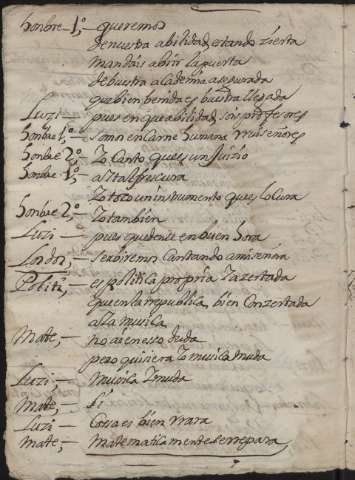 honbre 1º,— queremos
de nuestra abilidad, estando zierta
mandais abrir la puerta
de buestra academia asegurada
que bien benida es buestra llegada
Luzi — pues en que abilidad, sois profesores
honbre 1º — somos en carne humana, ruiseñores
honbre 2º — Yo canto que es un juizio
honbre 1º — ay tal frescura
Yo toco un instrumento que es locura
honbre 2º — Yo tambien
Luzi — pues quedense en buen hora
Los dos — serbiremos cantando a mi señora
Politi,— es politica propria y azertada
que en la republica, bien conzertada
alla musica
Mate,— no ai en eso duda
pero quisiera yo musica muda
Luzi,— Musica y muda
Mate,— si
Luzi — Cosa es bien rrara
Mate,— Matematicamente se rrepara